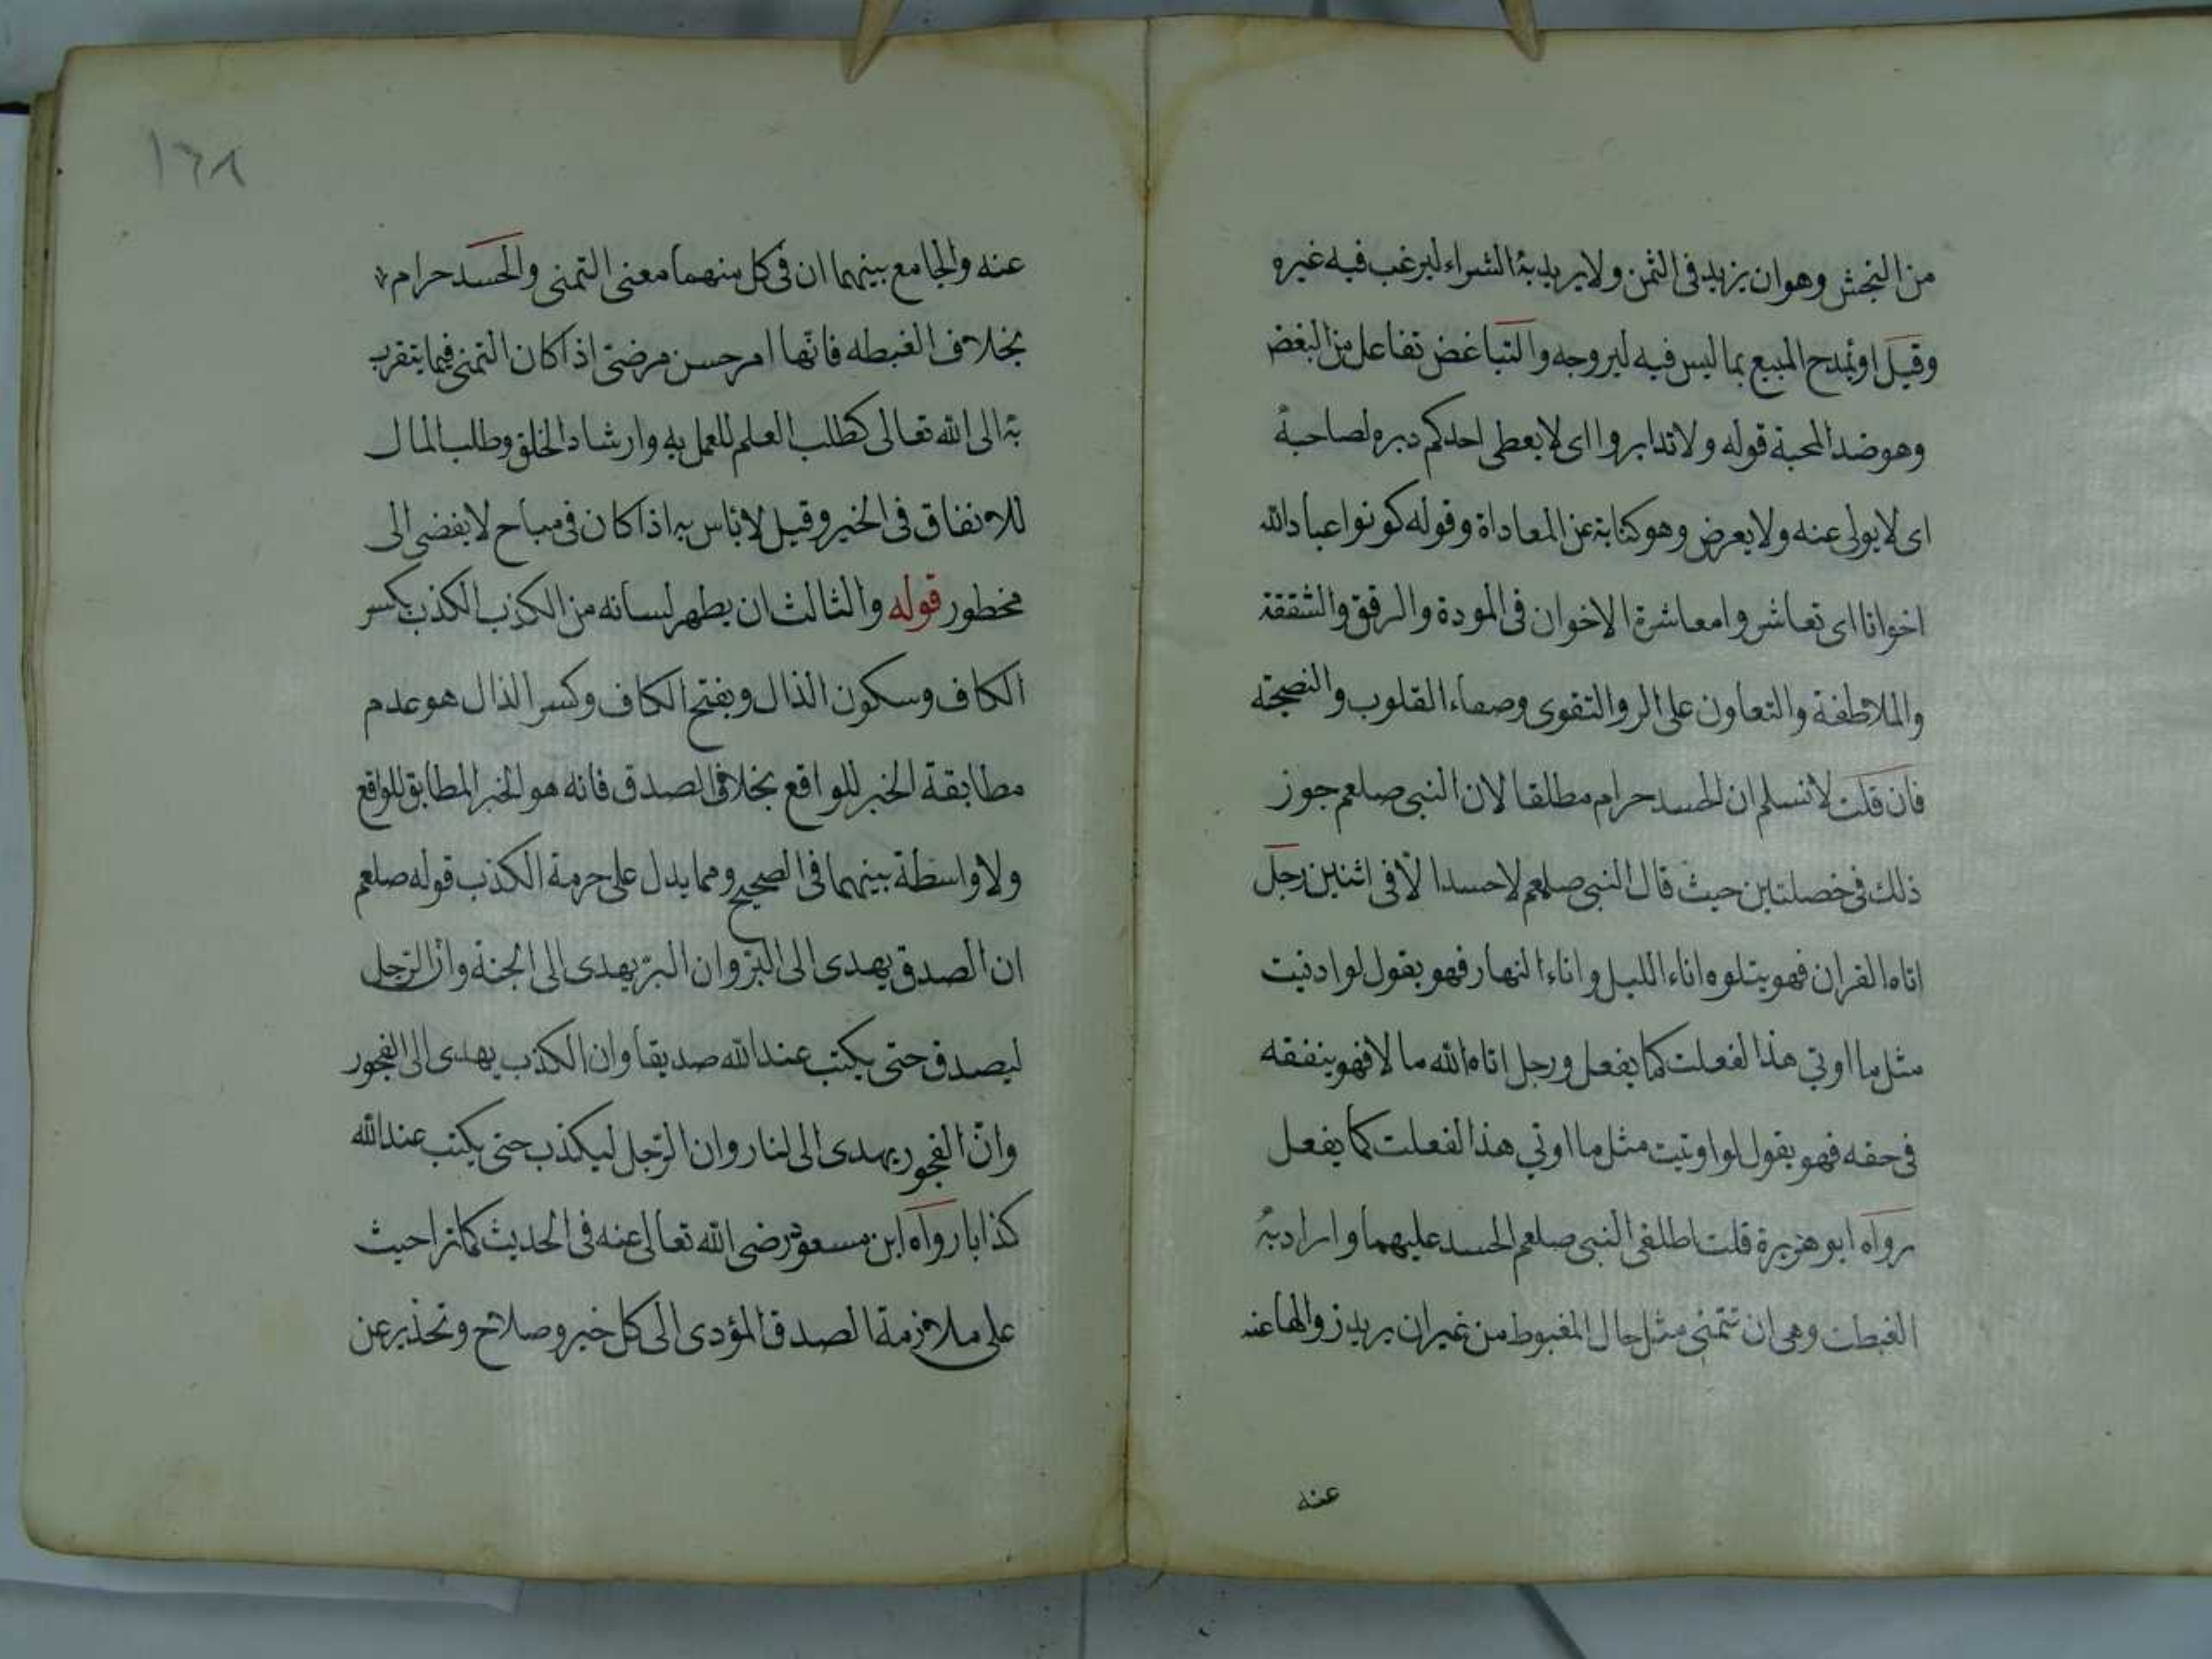 من النجش وهو ان يزيد فى الثمن ولا يريد به الشراء ليرغب فيه غيره
وقيل او يمدح المبيع بما ليس فيه ليروجه والتباغض تفاعل من البغض
وهو ضد المحبة قوله ولا تدابروا اى لا يعطى احدكم دبره لصاحبه
اى لا يولى عنه ولا يعرض وهو كناية عن المعاداة وقوله كونوا عباد الله
اخوانا اى تعاشروا معاشرة الاخوان فى المودة والرفق والشفقة
والملاطفة والتعاون على البر والتقوى وصفاء القلوب والنصيحة
فان قلت لا نسلم ان الحسد حرام مطلقا لان النبى صلعم جوز
ذلك فى خصلتين حيث قال النبى صلعم لا حسد الّا فى اثنين رجل
اتاه القران فهو يتلوه اناء الليل واناء النهار فهو يقول لو ادنيت
مثل ما اوتي هذا لفعلت كما يفعل ورجل اتاه الله مالا فهو ينفقه
فى حقه فهو يقول لو اوتيت مثل ما اوتي هذا لفعلت كما يفعل
رواه ابو هريرة قلت اطلقى النبى صلعم الحسد عليهما واراد به
الغبطت وهى ان تتمنى مثل حال المغبوط من غير ان يريد زوالها عنه
عنه
١٦٨
عنه والجامع بينهما ان فى كل منهما معنى التمنى والحسد حرام
بخلاف الغبطه فانّها امر حسن مرضىّ اذا كان التمنى فيما يتقرب
به الى الله تعالى كطلب العلم للعمل به وارشاد الخلق وطلب المال
للانفاق فى الخير وقيل لا بأس به اذا كان فى مباح لا يفضى الى
مخطور قوله والثالث ان يطهر لسانه من الكذب الكذب بكسر
الكاف وسكون الذال وبفتح الكاف وكسر الذال هو عدم
مطابقة الخبر للواقع بخلاف الصدق فانه هو الخبر المطابق للواقع
ولا واسطة بينهما فى الصحيح ومما يدل على حرمة الكذب قوله صلعم
ان الصدق يهدى الى البرّ وان البرّ يهدى الى الجنة وانّ الرّجل
ليصدق حتى يكتب عند الله صديقا وان الكذب يهدى الى الفجور
وانّ الفجور يهدى الى لنار وان الرّجل ليكذب حتى يكتب عند الله
كذابا رواه ابن مسعود رضى الله تعالى عنه فى الحديث كما ترا حيث
على ملازمة الصدق المؤدى الى كل خير وصلاح وتحذير عن